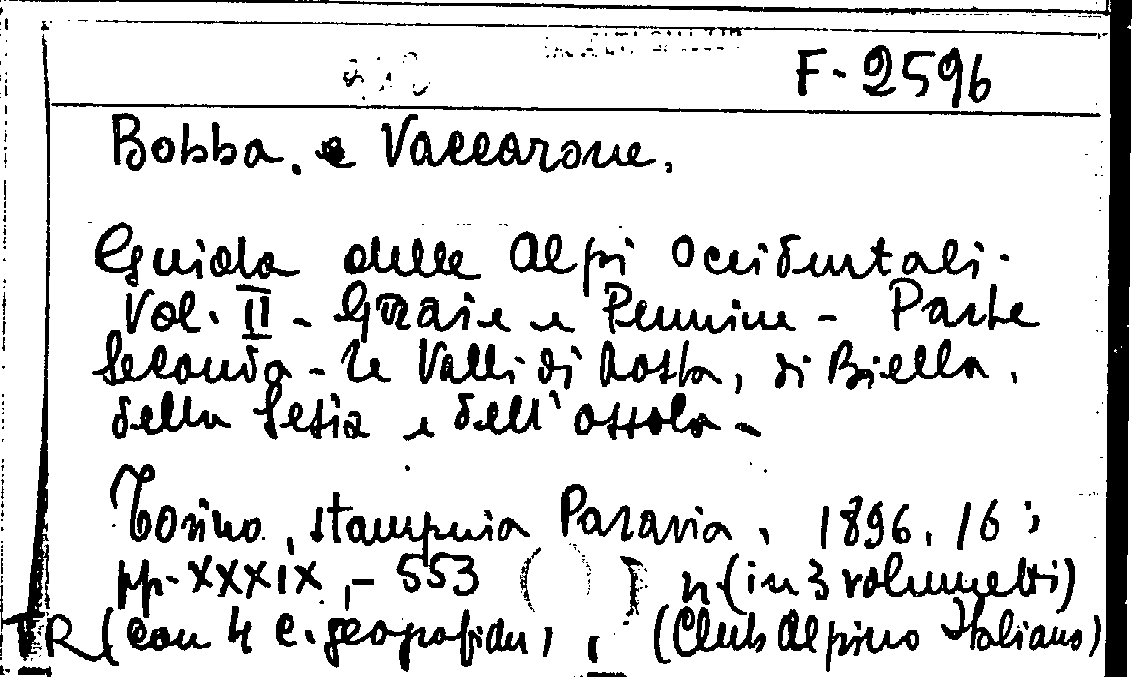 F-2596
Bobba. e Vaccarone.
Guida delle Alpi Occidentali.
Vol. II - Graie e Pennine - Parte
Seconda - Le Valli di Aosta, di Biella,
della Sesia e dell'Ossola -
Torino, stamperia Paravia, 1896, 16;
pp. XXXIX, - 553 ( ) (in 3 volumetti)
TR (con 4 c. geografiche), (Club Alpino Italiano)